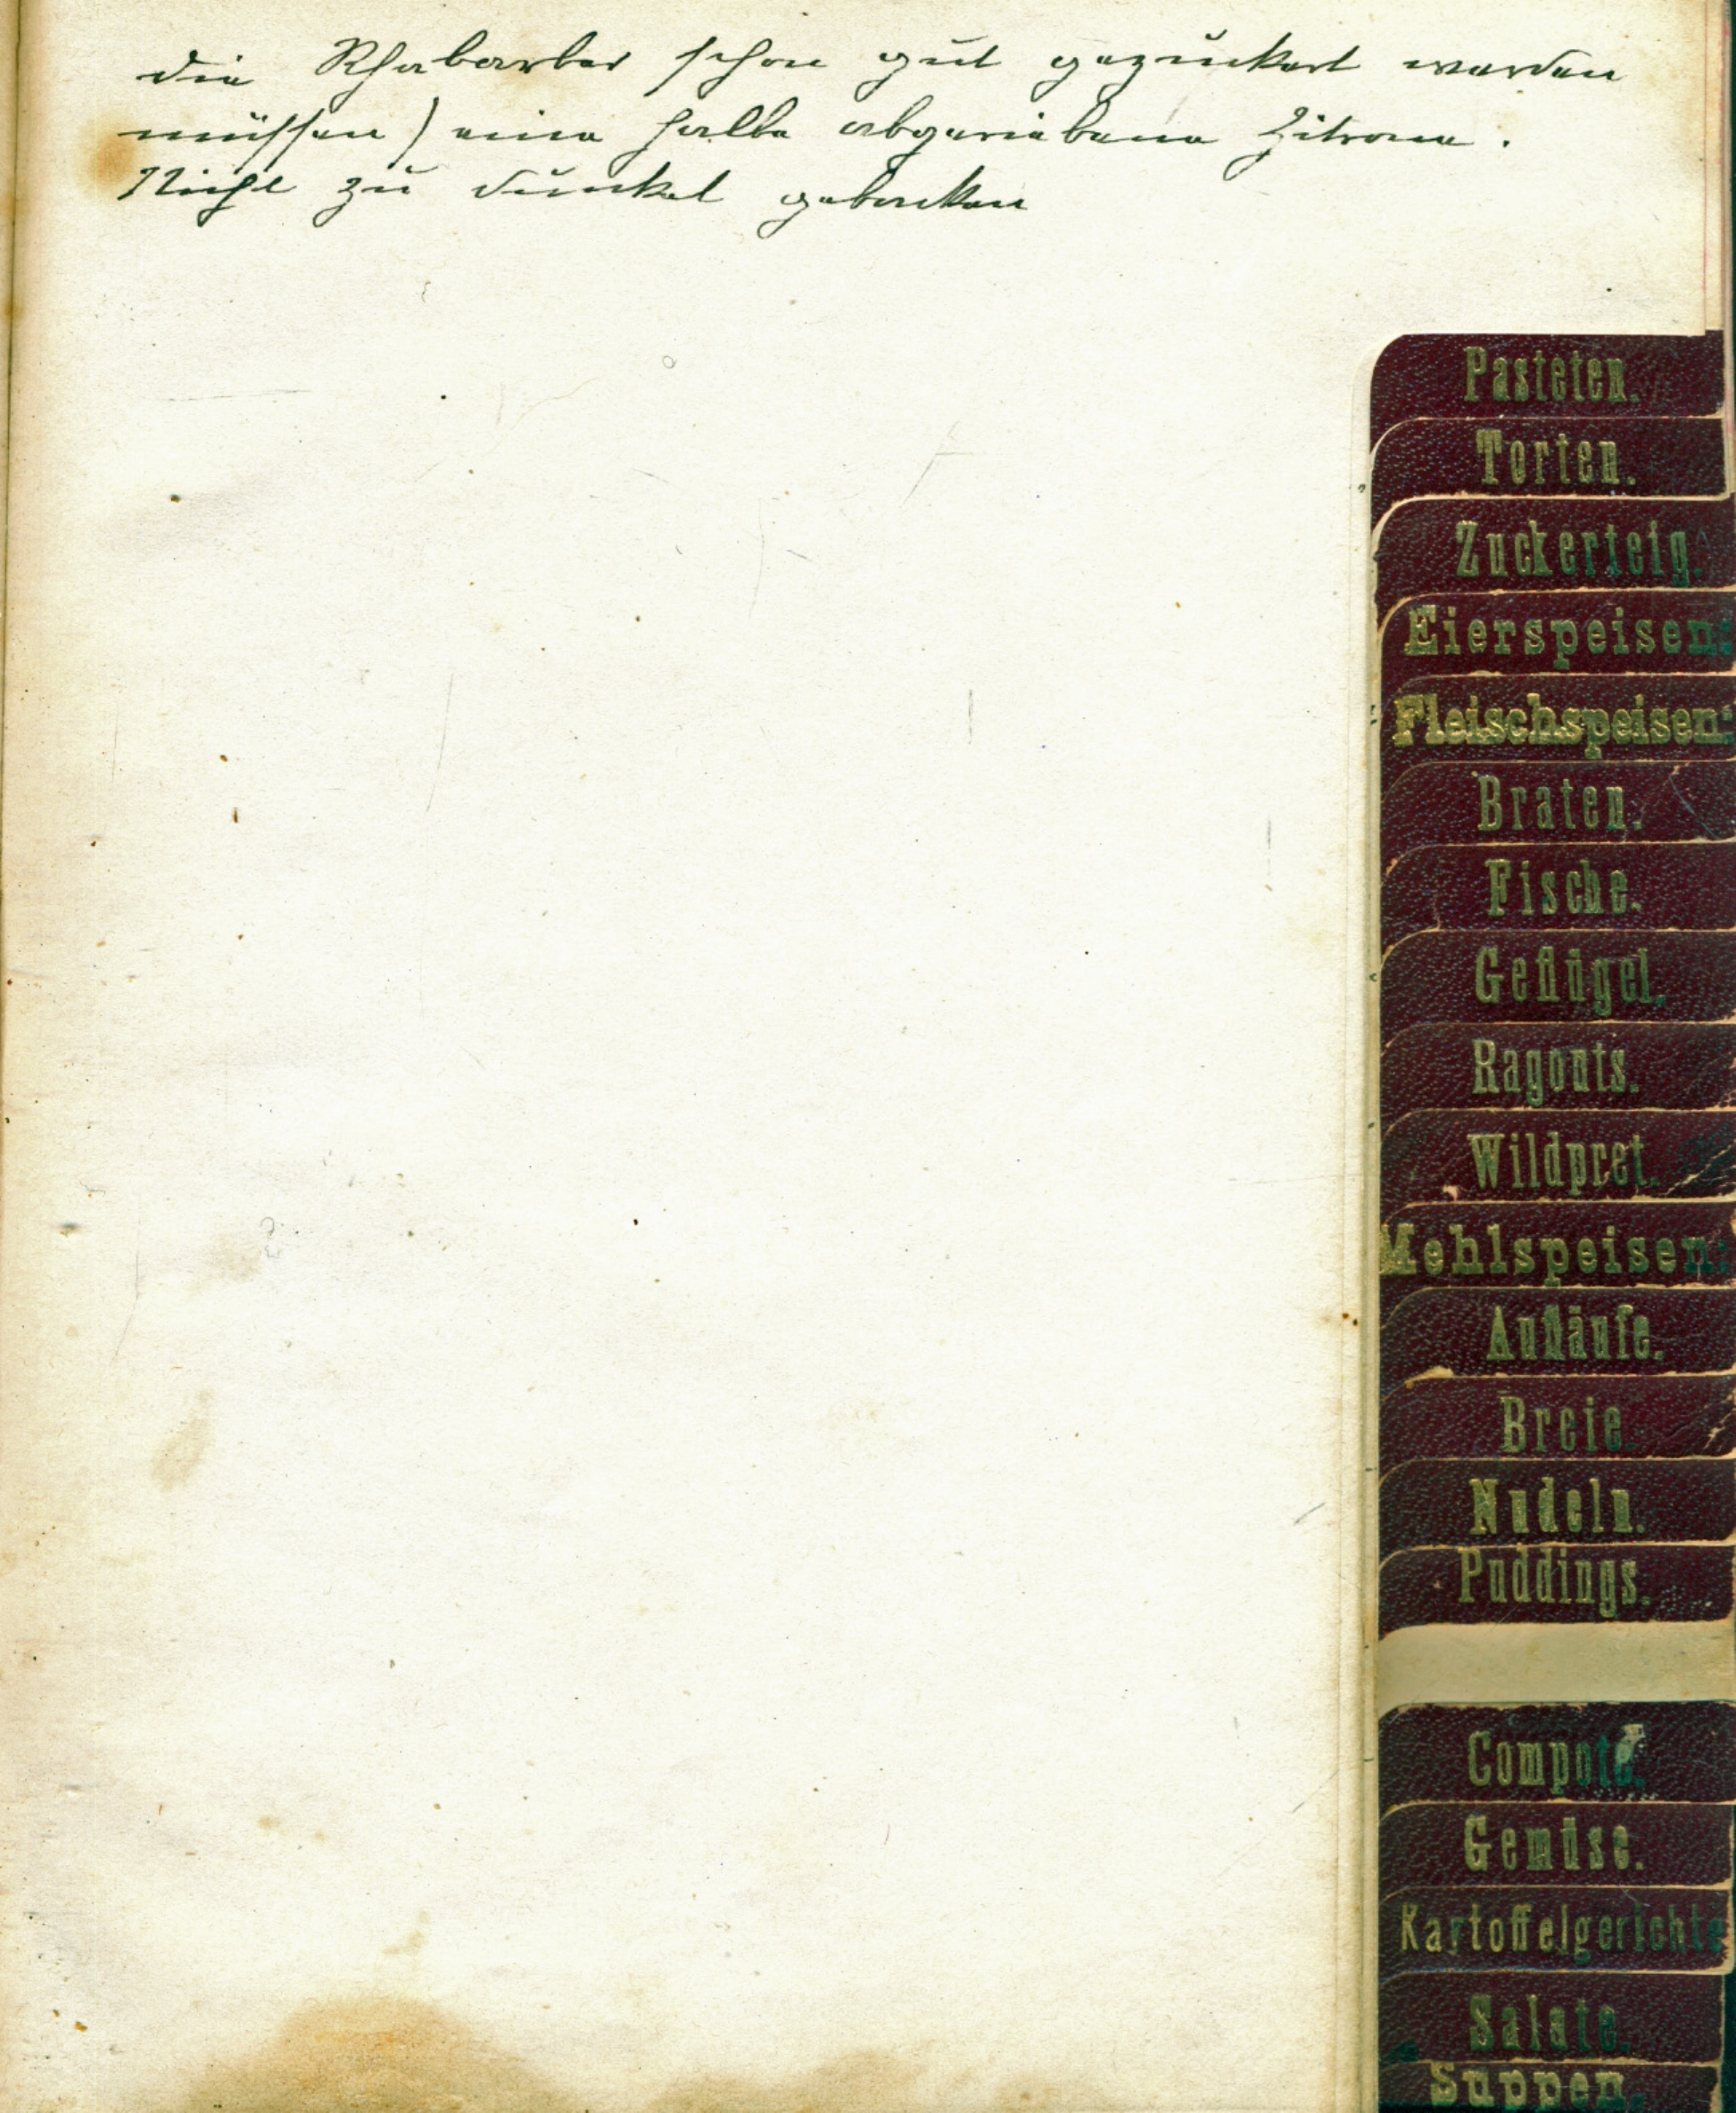 die Rhabarber schon gut gezuckert werden
müssen) eine halbe abgeriebene Zitrone.
Nicht zu dunkel gebacken
Pasteten.
Torten.
Zuckerteig.
Eierspeisen:
Fleischspeisen:
Braten.
Fische.
Geflügel.
Ragouts.
Wildpret.
Mehlspeisen:
Aufläufe.
Breie.
Nudeln.
Puddings.
Compote.
Gemüse.
Kartoffelgerichte
Salate.
Suppen.